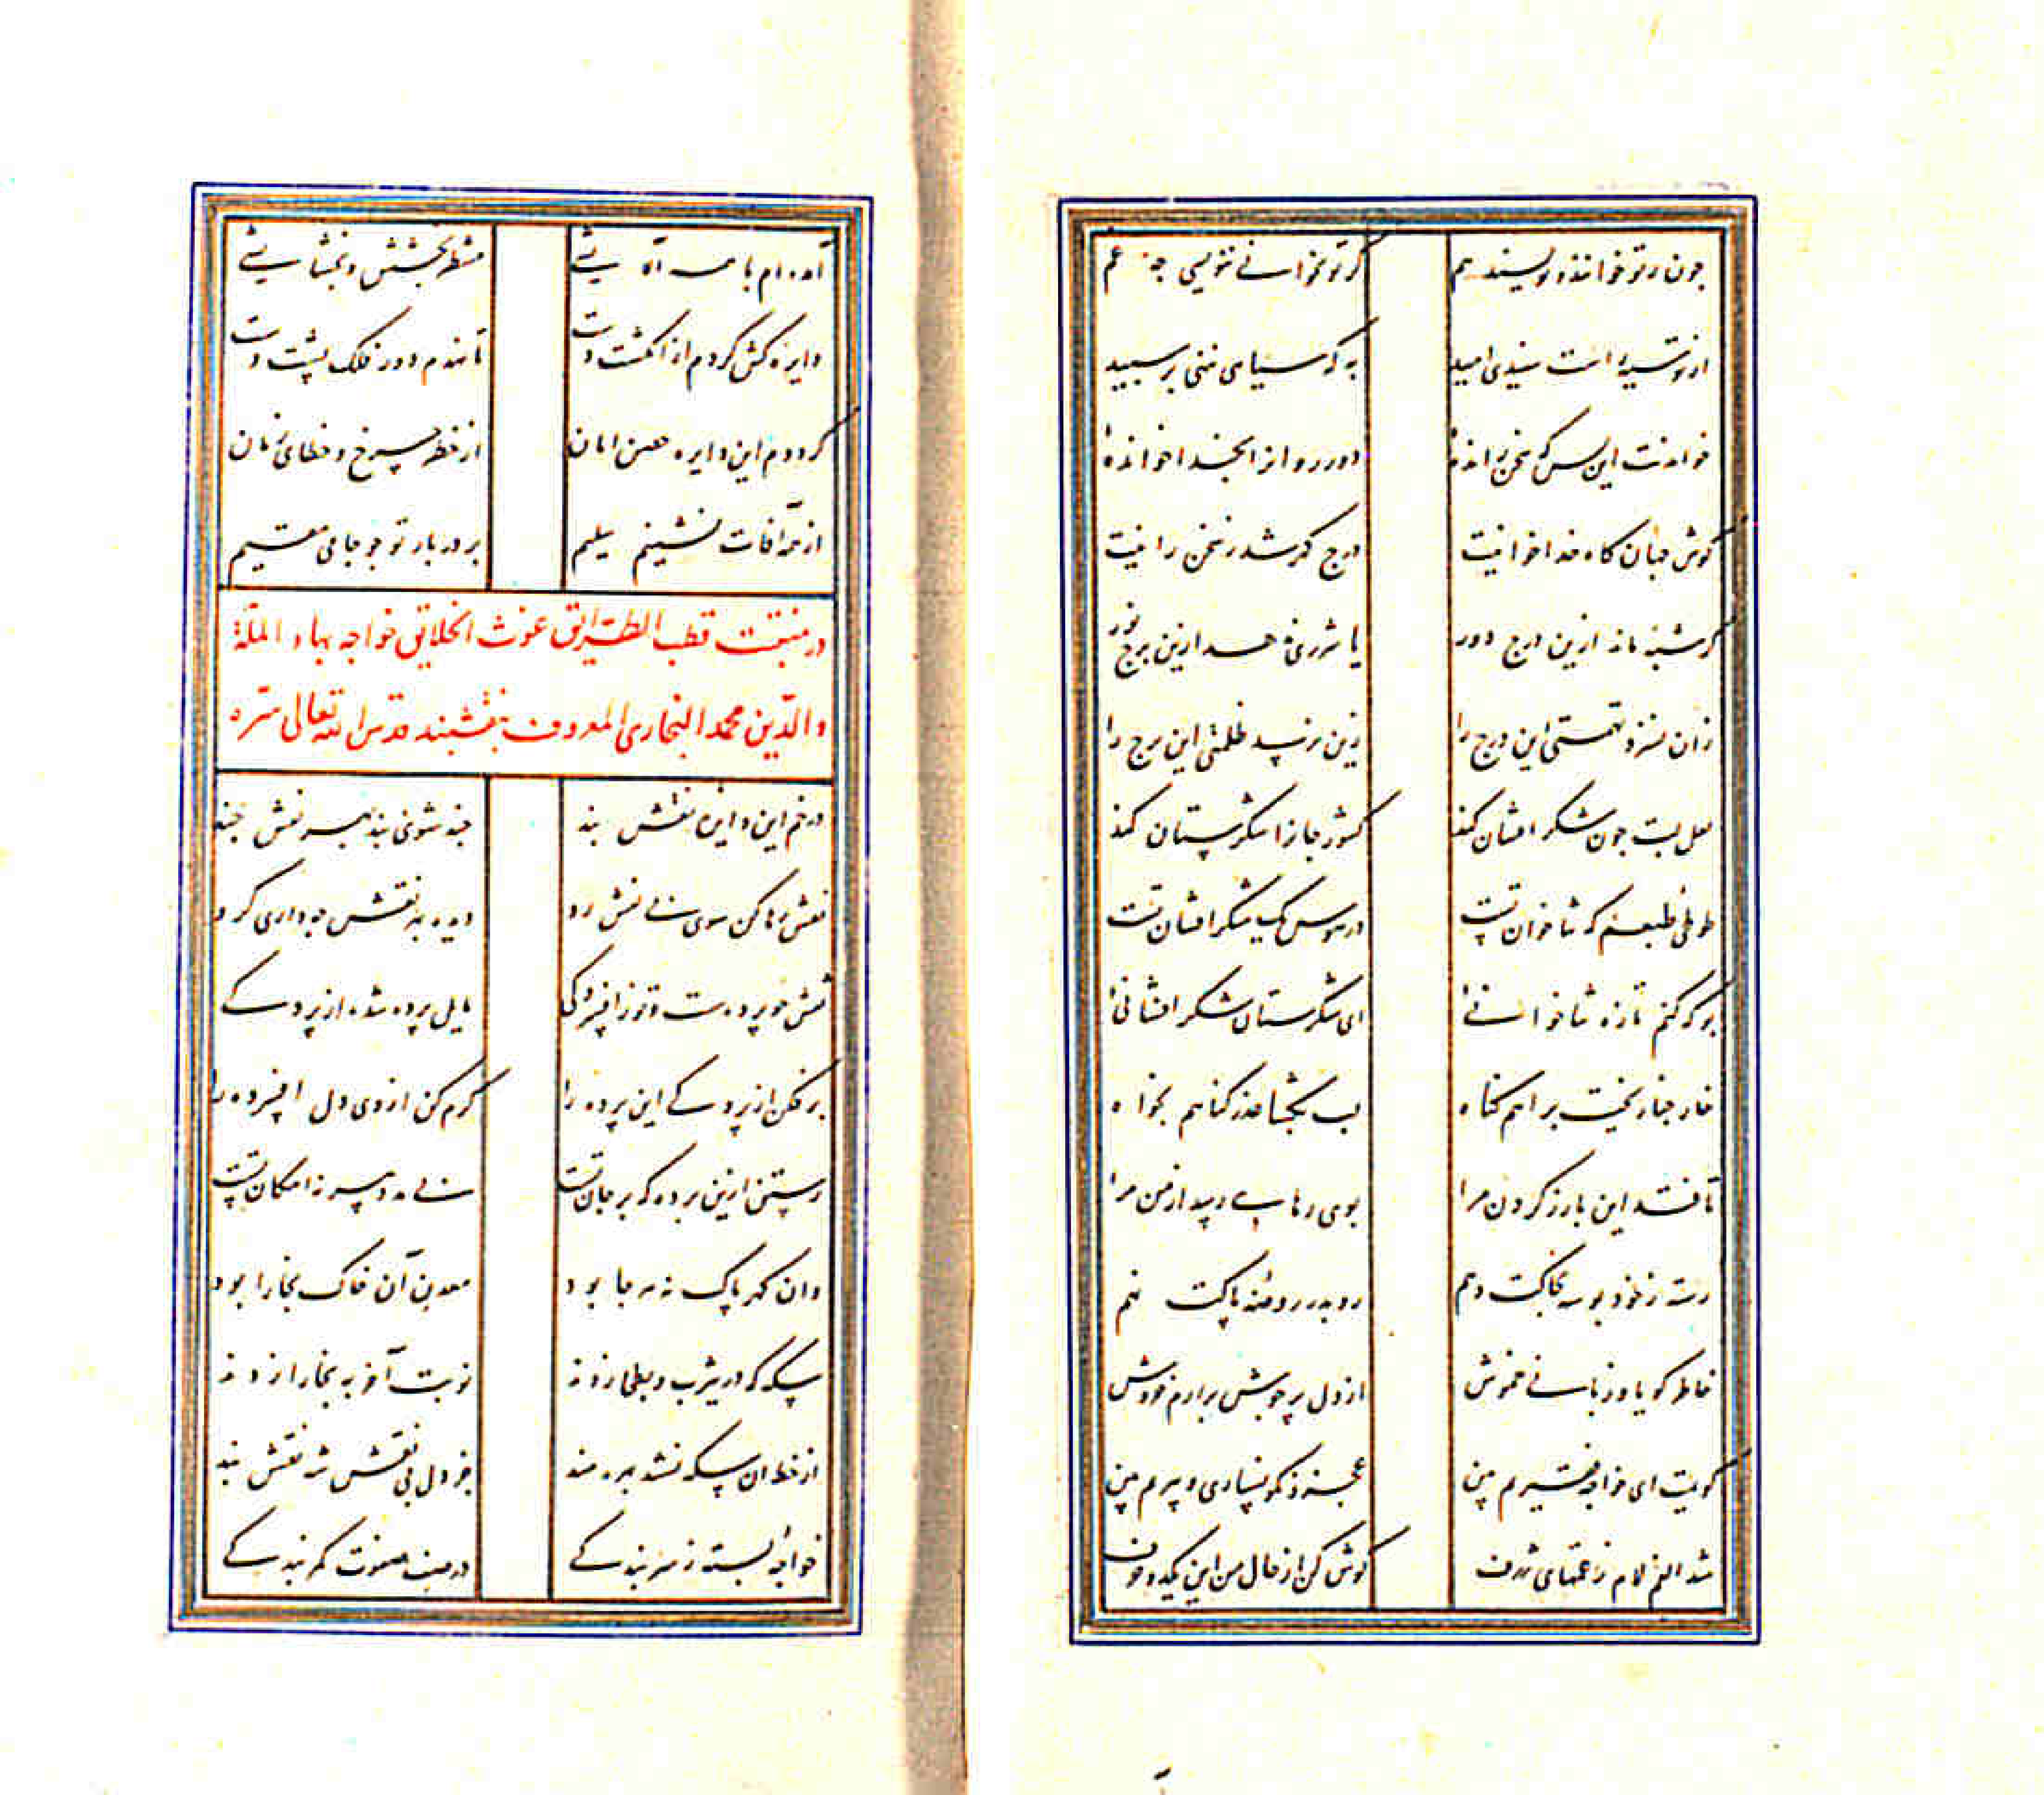 چون ز تو خوانند و نویسند هم گر تو نخوانی ننویسی چه غم
از تو سیه راست سفیدی امید به که سیاهی ننهی بر سپید
خواندنت این بس که سخن رانده دور رو از ابجد اخوانده
گوش جهان گاه خدا خوانیت درج گهر شد ز سخن رانیت
گر شبه ماند ازین درج دور یا شررئ شد ازین برج نور
زان نسزد تهمتی این درج را زین نرسد ظلمتی این برج را
لعل لبت چون شکر افشان کند کشور جان را شکرستان کند
طوطی طبعم که ثنا خوان تست در هوس یک شکر افشان تست
بو که کنم تازه ثنا خوانی ای شکرستان شکر افشانی
خار جفا ریخت براهم گناه لب بگشا عذر گناهم بخواه
تا فتد این بار ز گردن مرا بوی رهایی رسد از من مرا
رسته ز خود بوسه بخاکت دهم رو بدر روضه پاکت نهم
خاطر گویا و زبانی خموش از دل پر جوش برارم خروش
گویمت ای خواجه فقیرم ببین عجز و نگونساری و پیرم ببین
شد الفم لام ز غمهای ژرف گوش کن از حال من این یک دو حرف
آمده‌ام با همه آلایشی منتظر بخشش و بخشایشی
دایره کش کردم از انگشت دست تا ندهم دور فلک پشت دست
گرددم این دایره حصن امان از خطر چرخ و خطای زمان
از همه آفات نشینم سلیم بر در بار تو چو جامی مقیم
در منقبت قطب الطرایق غوث الخلایق خواجه بهاء الملة
والدین محمد البخاری المعروف بنقشبند قدس الله تعالی سره
در خم این دایره نقش بند چند شوی بند بهر نقش چند
نقش رها کن سوی بی نقش رو دیده به نقش چه داری گرو
نقش چو پرده‌ست و تو از پردگی مایل پرده شده از پردگی
بر فکن از پردگی این پرده را گرم کن از وی دل افسرده را
رستن ازین پرده که بر جان تست بی مدد پیر نه امکان تست
وان گهر پاک نه هر جا بود معدن آن خاک بخارا بود
سکه که در یثرب و بطحا زدند نوبت آخر به بخارا زدند
از خط ان سکه نشد بهره مند جز دل بی نقش شه نقش بند
خواجه بسته ز سر بندگی در صف صفوت کمر بندگی